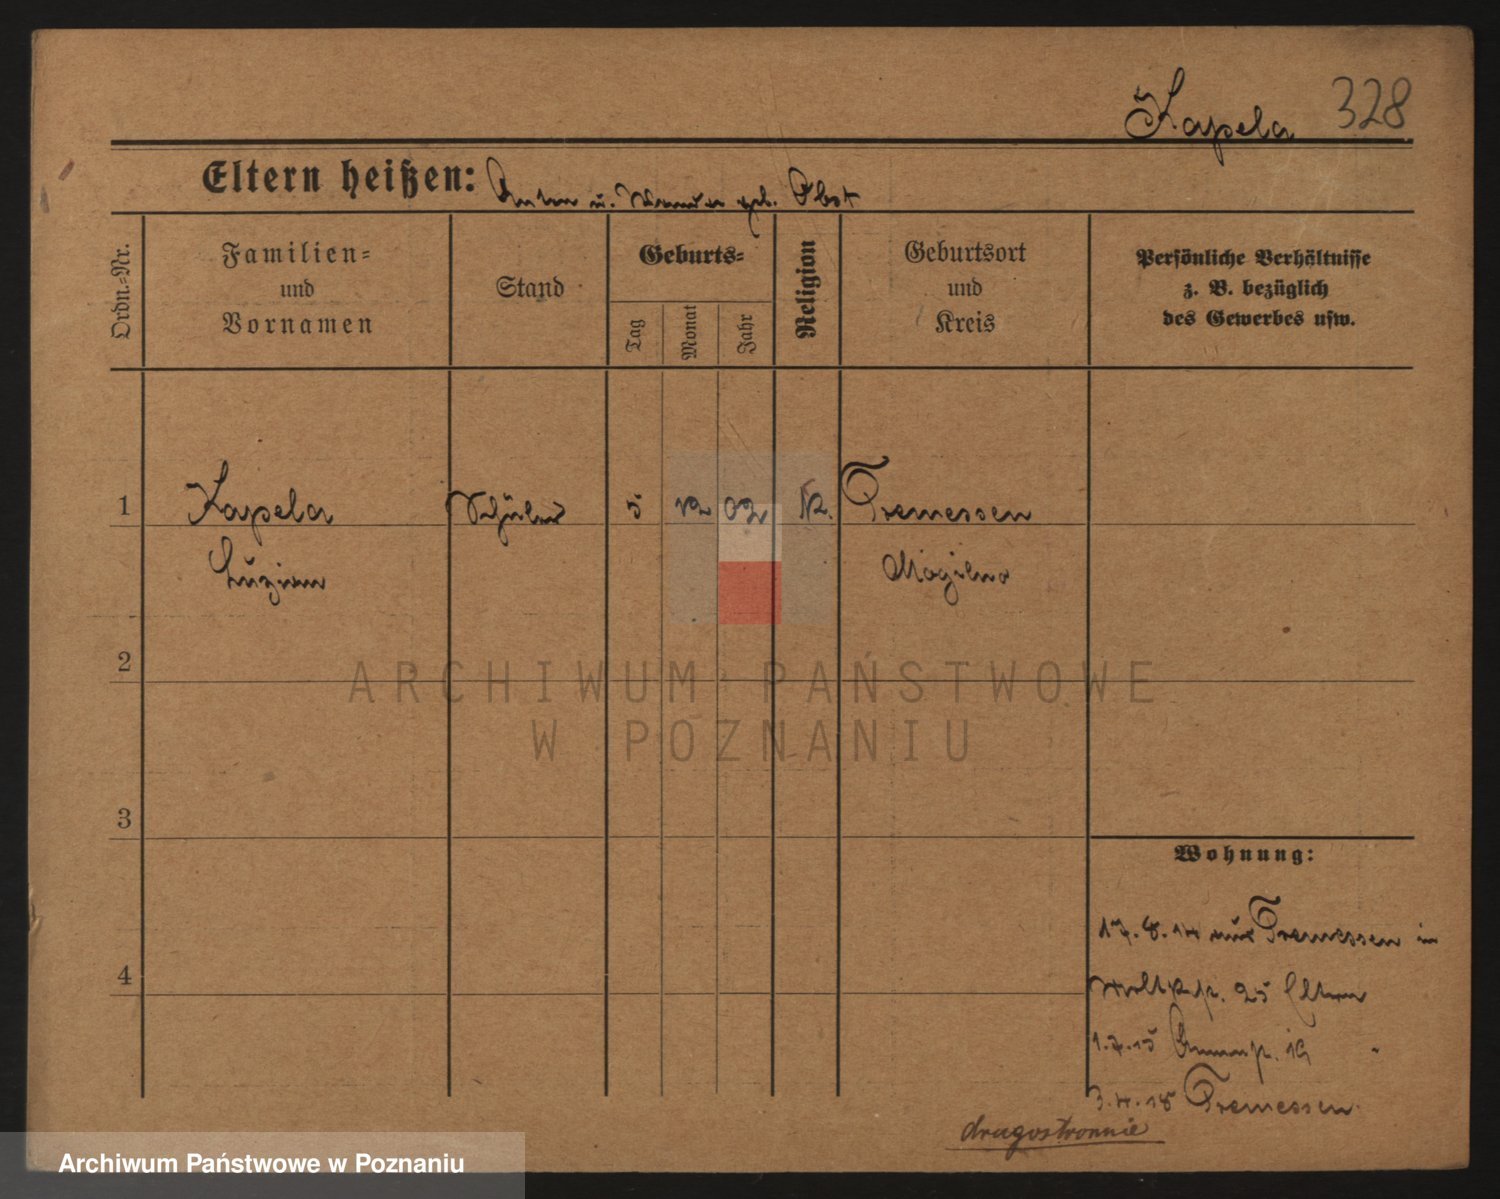 Kapela 328
Eltern heißen: Anton u. geb. Obst
Ordn.-Nr.
Familien-
und
Vornamen
Stand
Geburts-
Tag
Monat
Jahr
Religion
Geburtsort
und
Kreis
Persönliche Verhältnisse
z. B. bezüglich
des Gewerbes usw.
1 Kapela Schüler 5 12 02 K. Tremessen
Luzian Mogilno
2
3
4
Wohnung:
17.8.14 aus Tremessen in
25 Eltern
1.7.15 19 "
3.4.18 Tremessen.
drugostronnie
ARCHIWUM PAŃSTWOWE
W POZNANIU
Archiwum Państwowe w Poznaniu